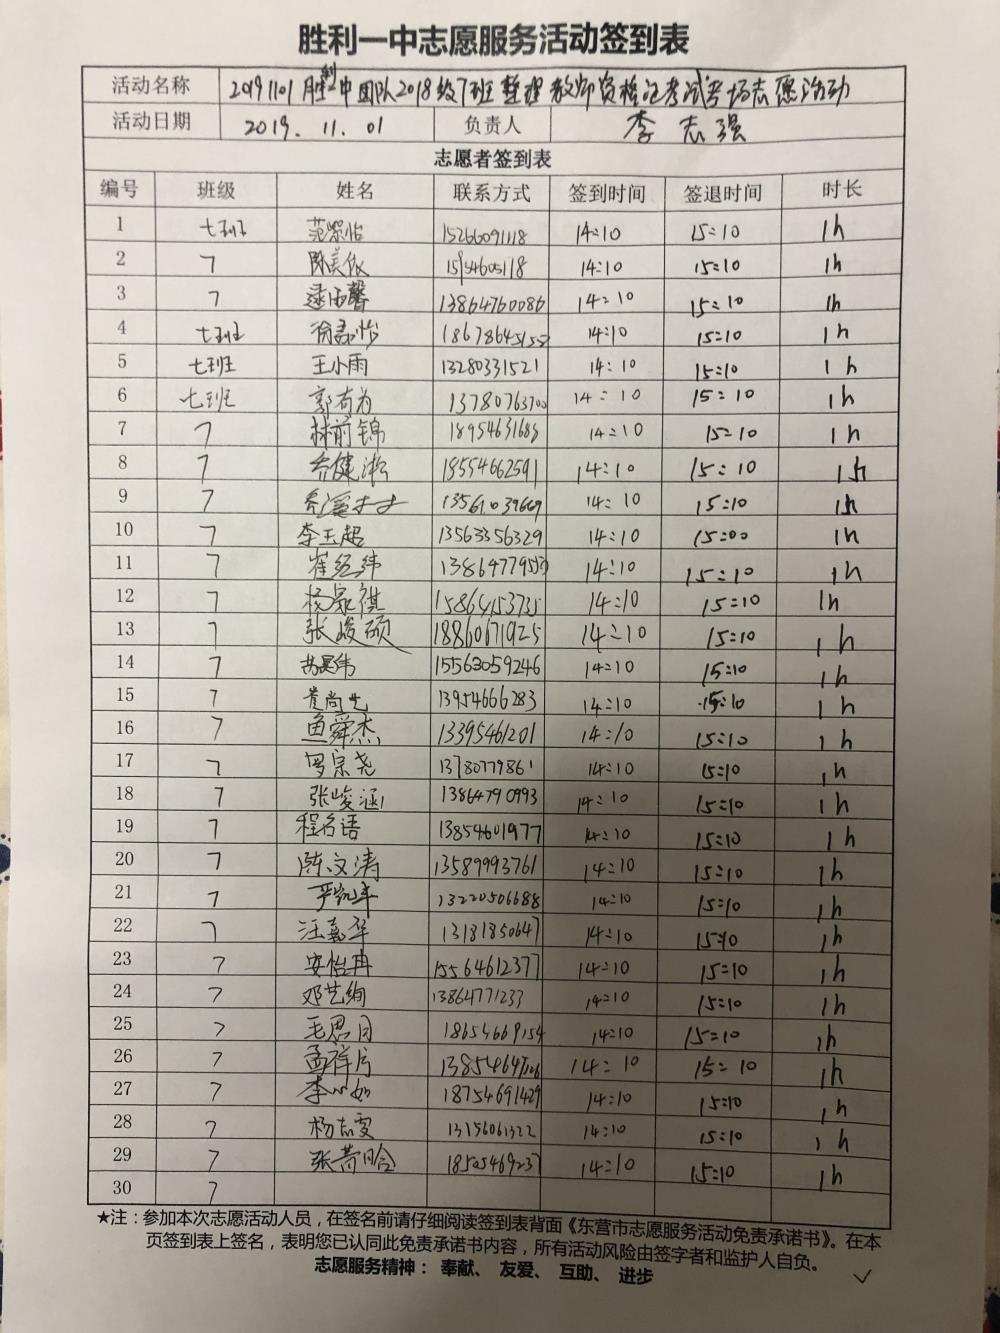 胜利一中志愿服务活动签到表
活动名称 20191101胜利一中团队2018级7班整理教师资格证考试考场志愿活动
活动日期 2019.11.01 负责人 李志强
志愿者签到表
编号 班级 姓名 联系方式 签到时间 签退时间 时长
1 七班 15266091118 14:10 15:10 1h
2 7 陈美依 14:10 15:10 1h
3 7 逯雨馨 13864760086 14:10 15:10 1h
4 七班 14:10 15:10 1h
5 七班 王小雨 13280331521 14:10 15:10 1h
6 七班 郭有为 13780763700 14:10 15:10 1h
7 7 林前锦 14:10 15:10 1h
8 7 乔健淞 14:10 15:10 1h
9 7 13561039669 14:10 15:10 1h
10 7 李玉超 13563356329 14:10 15:00 1h
11 7 崔经纬 14:10 15:10 1h
12 7 杨家祺 15864153735 14:10 15:10 1h
13 7 张峻硕 18860671925 14:10 15:10 1h
14 7 15563059246 14:10 15:10 1h
15 7 黄尚先 13954666283 14:10 15:10 1h
16 7 鱼舜杰 13395461201 14:10 15:10 1h
17 7 罗宗尧 13780779861 14:10 15:10 1h
18 7 张峻涵 13864790993 14:10 15:10 1h
19 7 程名语 13854601977 14:10 15:10 1h
20 7 陈文涛 13589993761 14:10 15:10 1h
21 7 13220506688 14:10 15:10 1h
22 7 汪嘉华 13181850647 14:10 15:10 1h
23 7 安怡冉 15564612377 14:10 15:10 1h
24 7 邓艺绚 13864771233 14:10 15:10 1h
25 7 毛思月 18654669154 14:10 15:10 1h
26 7 14:10 15:10 1h
27 7 18754691429 14:10 15:10 1h
28 7 杨志雯 13156061322 14:10 15:10 1h
29 7 18505469237 14:10 15:10 1h
30 7
★注：参加本次志愿活动人员，在签名前请仔细阅读签到表背面《东营市志愿服务活动免责承诺书》。在本
页签到表上签名，表明您已认同此免责承诺书内容，所有活动风险由签字者和监护人自负。
志愿服务精神： 奉献、 友爱、 互助、 进步